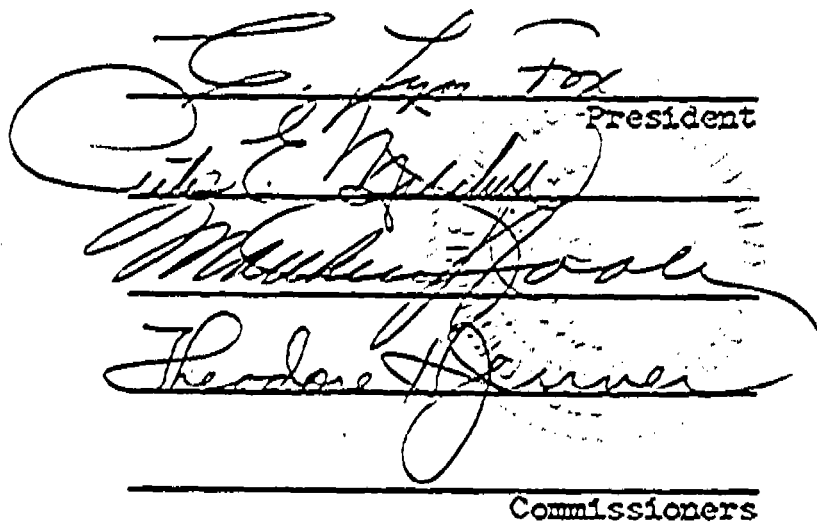 C. Lyn Fox
President
Peter E. Mitchell
Theodore Jenner
Commissioners